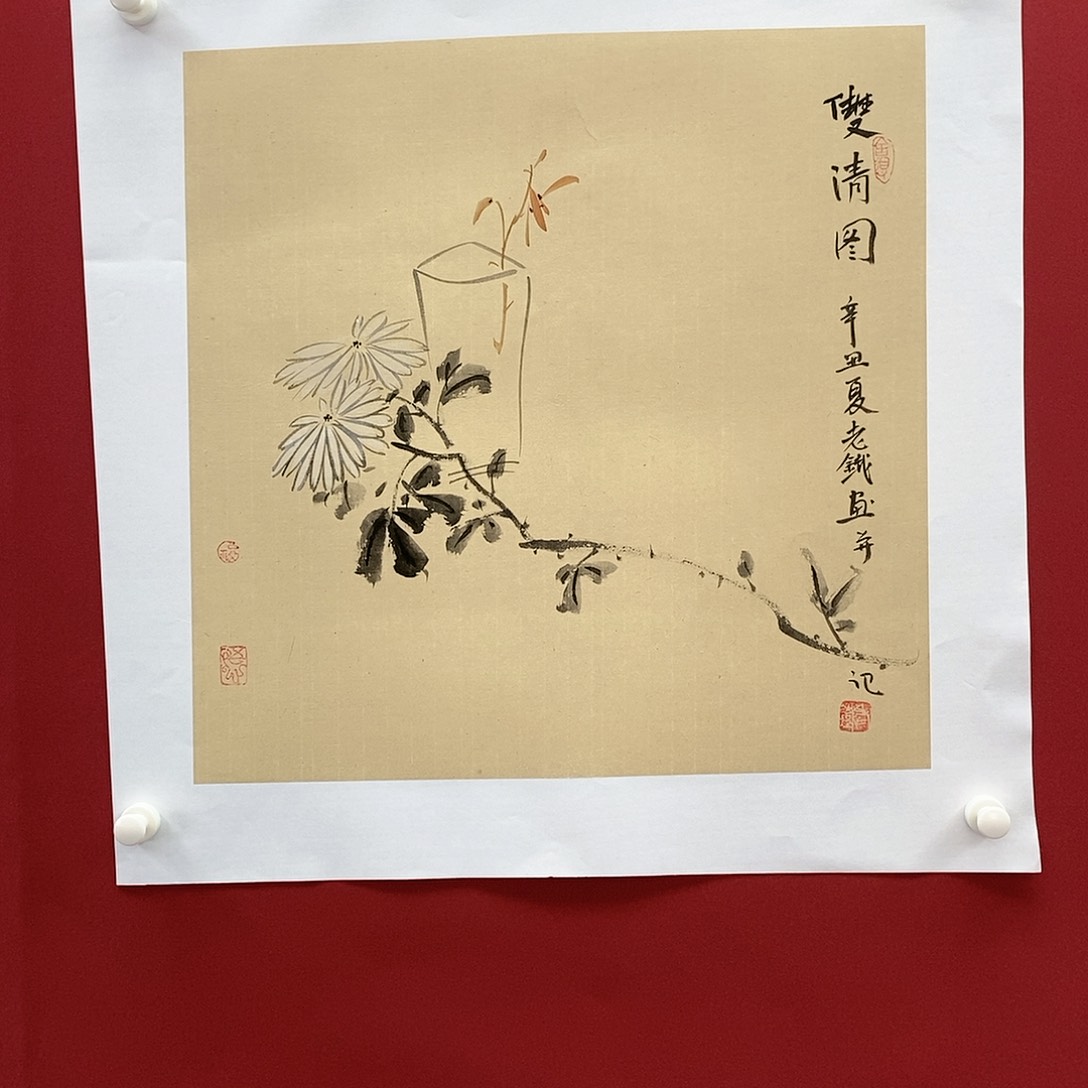 雙清图
辛丑夏老鐵画并
记